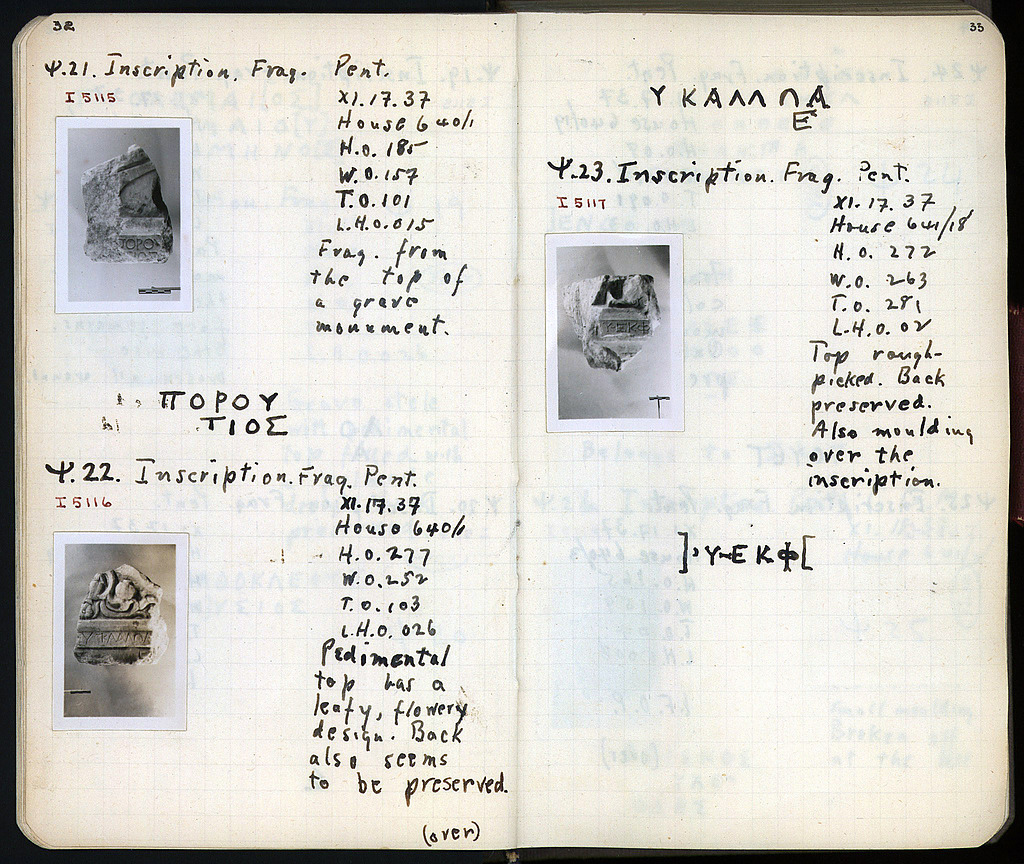 32
Ψ.21. Inscription. Frag. Pent.
I 5115
XI.17.37
House 640/1
H.0.185
W.0.157
T.0.101
L.H.0.015
Frag. from
the top of
a grave
monument.
ΤΟΡΟ
ΠΟΡΟΥ
ΤΙΟΣ
Ψ.22. Inscription. Frag. Pent.
I 5116
XI.17.37
House 640/1
H.0.277
W.0.252
T.0.103
L.H.0.026
Pedimental
top has a
leafy, flowery
design. Back
also seems
to be preserved.
(over)
33
ΥΚΑΛΛΠΑ
Ε
Ψ.23. Inscription. Frag. Pent.
I 5117
XI.17.37
House 641/18
H.0.272
W.0.263
T.0.281
L.H.0.02
Top rough-
picked. Back
preserved.
Also moulding
over the
inscription.
ΥΕΚΦ
]ΥΕΚΦ[